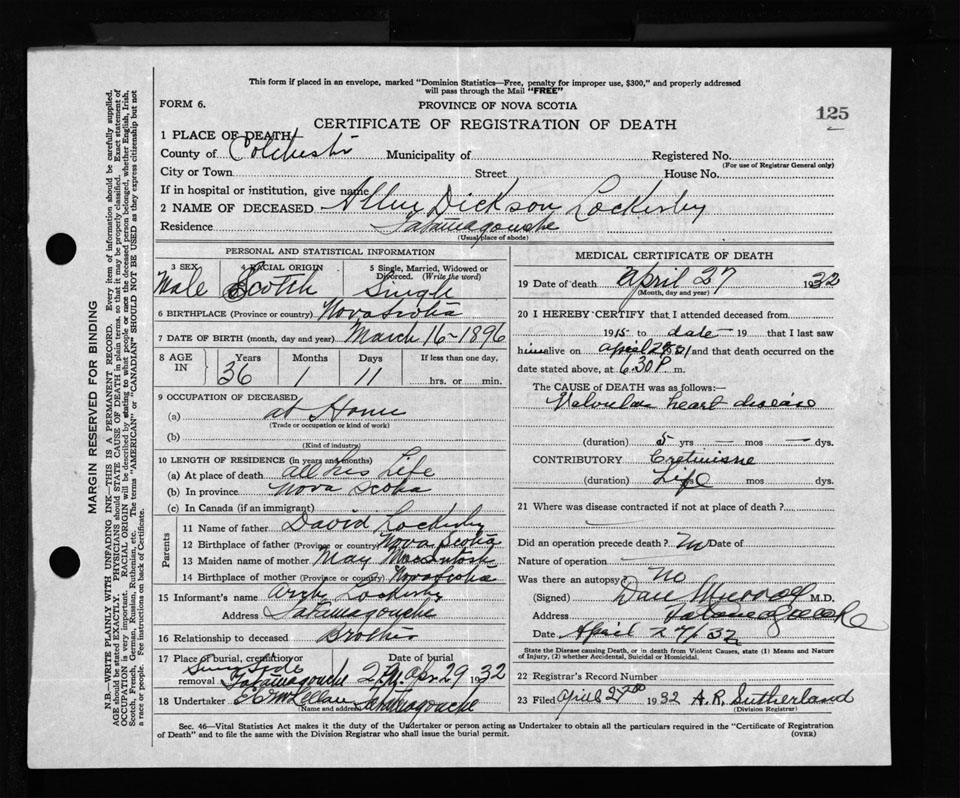 This form if placed in an envelope, marked "Dominion Statistics—Free, penalty for improper use, $300," and properly addressed
will pass through the Mail "FREE"
FORM 6.
PROVINCE OF NOVA SCOTIA
125
CERTIFICATE OF REGISTRATION OF DEATH
1 PLACE OF DEATH
County of Colchester Municipality of Registered No.
(For use of Registrar General only)
City or Town Street House No.
If in hospital or institution, give name
2 NAME OF DECEASED Dickson Lockerby
Residence Tatamagouche
(Usual place of abode)
PERSONAL AND STATISTICAL INFORMATION
3 SEX 4 RACIAL ORIGIN 5 Single, Married, Widowed or Divorced. (Write the word)
Male Scotch Single
6 BIRTHPLACE (Province or country) Nova Scotia
7 DATE OF BIRTH (month, day and year) March 16-1896
8 AGE IN Years Months Days If less than one day,
36 1 11 hrs. or min.
9 OCCUPATION OF DECEASED
(a) at Home
(Trade or occupation or kind of work)
(b)
(Kind of industry)
10 LENGTH OF RESIDENCE (in years and months)
(a) At place of death all his Life
(b) In province Nova Scotia
(c) In Canada (if an immigrant)
Parents
11 Name of father David Lockerby
12 Birthplace of father (Province or country) Nova Scotia
13 Maiden name of mother May MacIntosh
14 Birthplace of mother (Province or country) Nova Scotia
15 Informant's name Arch Lockerby
Address Tatamagouche
16 Relationship to deceased Brother
17 Place of burial, cremation or removal Date of burial
Tatamagouche Apr 29 1932
18 Undertaker McLellan Tatamagouche
(Name and address)
MEDICAL CERTIFICATE OF DEATH
19 Date of death April 27 1932
(Month, day and year)
20 I HEREBY CERTIFY that I attended deceased from
1915 to date 19 that I last saw
him alive on April and that death occurred on the
date stated above, at 6.30 P. m.
The CAUSE OF DEATH was as follows:—
Valvular heart disease
(duration) 5 yrs — mos — dys.
CONTRIBUTORY
(duration) Life yrs. mos. dys.
21 Where was disease contracted if not at place of death?
Did an operation precede death? no Date of
Nature of operation
Was there an autopsy? no
(Signed) Dan Murray M.D.
Address Tatamagouche
Date April 27/32
State the Disease causing Death, or in death from Violent Causes, state (1) Means and Nature of Injury, (2) whether Accidental, Suicidal or Homicidal.
22 Registrar's Record Number
23 Filed April 27th 1932 A.R. Sutherland
(Division Registrar)
Sec. 46—Vital Statistics Act makes it the duty of the Undertaker or person acting as Undertaker to obtain all the particulars required in the "Certificate of Registration
of Death" and to file the same with the Division Registrar who shall issue the burial permit.
(OVER)
MARGIN RESERVED FOR BINDING
N.B.—WRITE PLAINLY WITH UNFADING INK—THIS IS A PERMANENT RECORD. Every item of information should be carefully supplied.
AGE should be stated EXACTLY. PHYSICIANS should STATE CAUSE OF DEATH in plain terms, so that it may be properly classified. Exact statement of
OCCUPATION is very important. RACIAL ORIGIN will be described by stating to what people or race the deceased person belonged, whether English, Irish,
Scotch, French, German, Russian, Ruthenian, etc. The terms "AMERICAN" or "CANADIAN" SHOULD NOT BE USED as they express citizenship but not
a race or people. See instructions on back of Certificate.